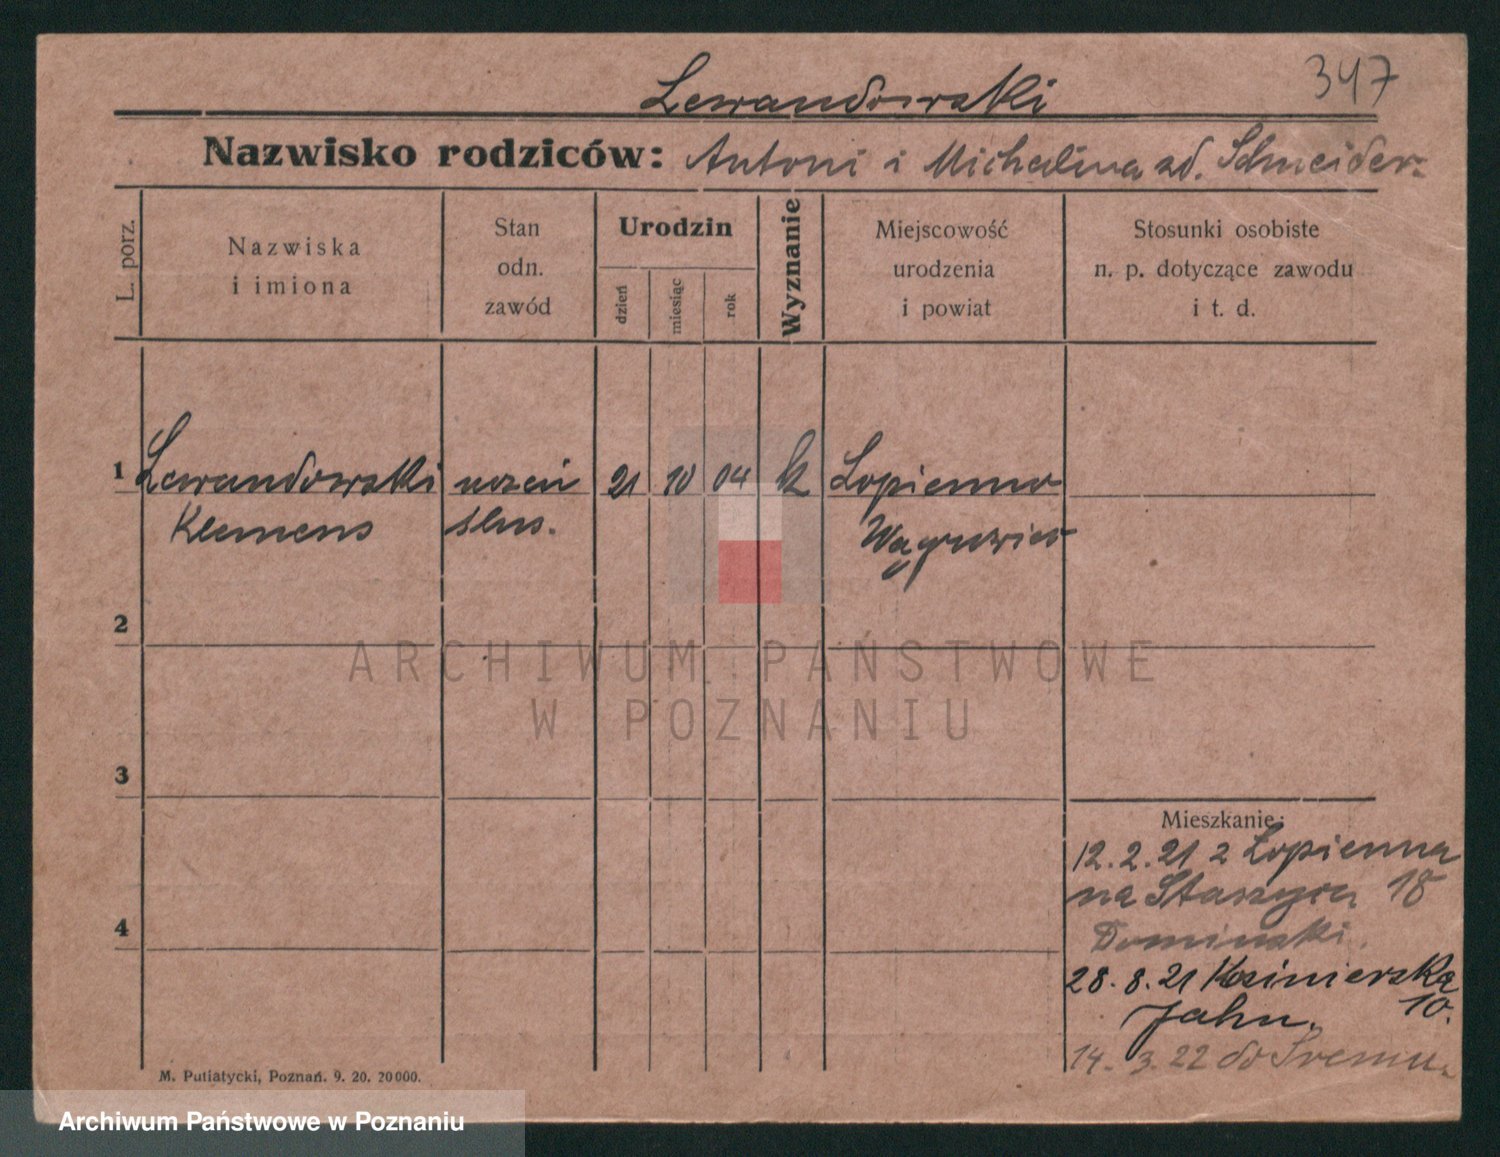 Lewandowski
347
Nazwisko rodziców: Antoni i Michalina zd. Schneider
L. porz.
Nazwiska
i imiona
Stan
odn.
zawód
Urodzin
dzień
miesiąc
rok
Wyznanie
Miejscowość
urodzenia
i powiat
Stosunki osobiste
n. p. dotyczące zawodu
i t. d.
1 Lewandowski uczeń 21 10 04 k Łopienno
Klemens ślus. Wągrowiec
2
3
4
ARCHIWUM PAŃSTWOWE
W POZNANIU
Mieszkanie:
12.2.21 z Łopienna
na Staszyca 18
Dominski.
28.8.21 Kosinierska
10.
Jahn.
14.3.22 do Śremu.
M. Putiatycki, Poznań. 9. 20. 20000.
Archiwum Państwowe w Poznaniu